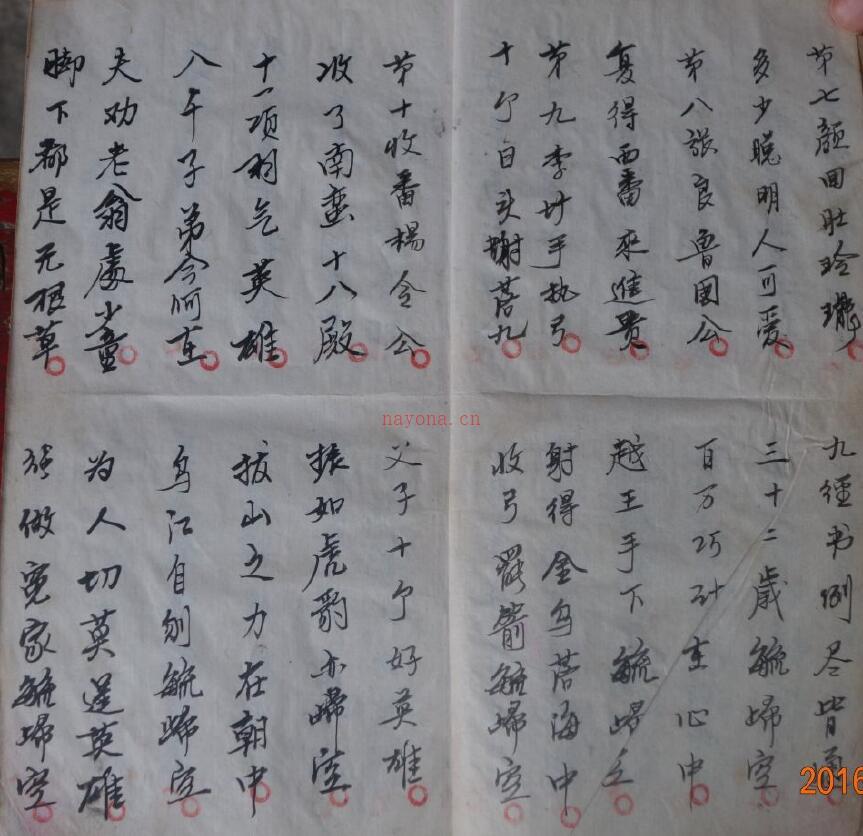 苐七颜回肚玲瓏
九經书例尽皆通
多少聪明人可爱
三十二歲毓歸空
苐八張良魯国公
百万巧计在心中
复得西番來進貢
越王手下毓歸空
苐九李手执弓
射得金乌落海中
十个白头谢落九
收弓罷箭毓歸空
苐十收番楊令公
父子十个好英雄
收了南蛮十八殿
振如虎豹亦歸空
十一項羽气英雄
拔山之力在朝中
八千子弟今何在
乌江自刎毓歸空
夫劝老翁處少童
为人切莫逞英雄
脚下都是无根草
强做冤家毓歸空
nayona.cn
2016